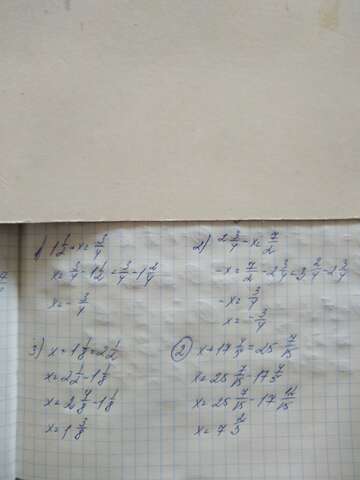 1) 1 1/2 + x = 3/4
x = 3/4 - 1 1/2 = 3/4 - 1 2/4
x = - 3/4
2) 2 3/4 - x = 7/2
- x = 7/2 - 2 3/4 = 3 2/4 - 2 3/4
- x = 3/4
x = - 3/4
3) x + 1 1/8 = 2 1/2
x = 2 1/2 - 1 1/8
x = 2 4/8 - 1 1/8
x = 1 3/8
2) x + 17 4/5 = 25 7/15
x = 25 7/15 - 17 4/5
x = 25 7/15 - 17 12/15
x = 7 2/3